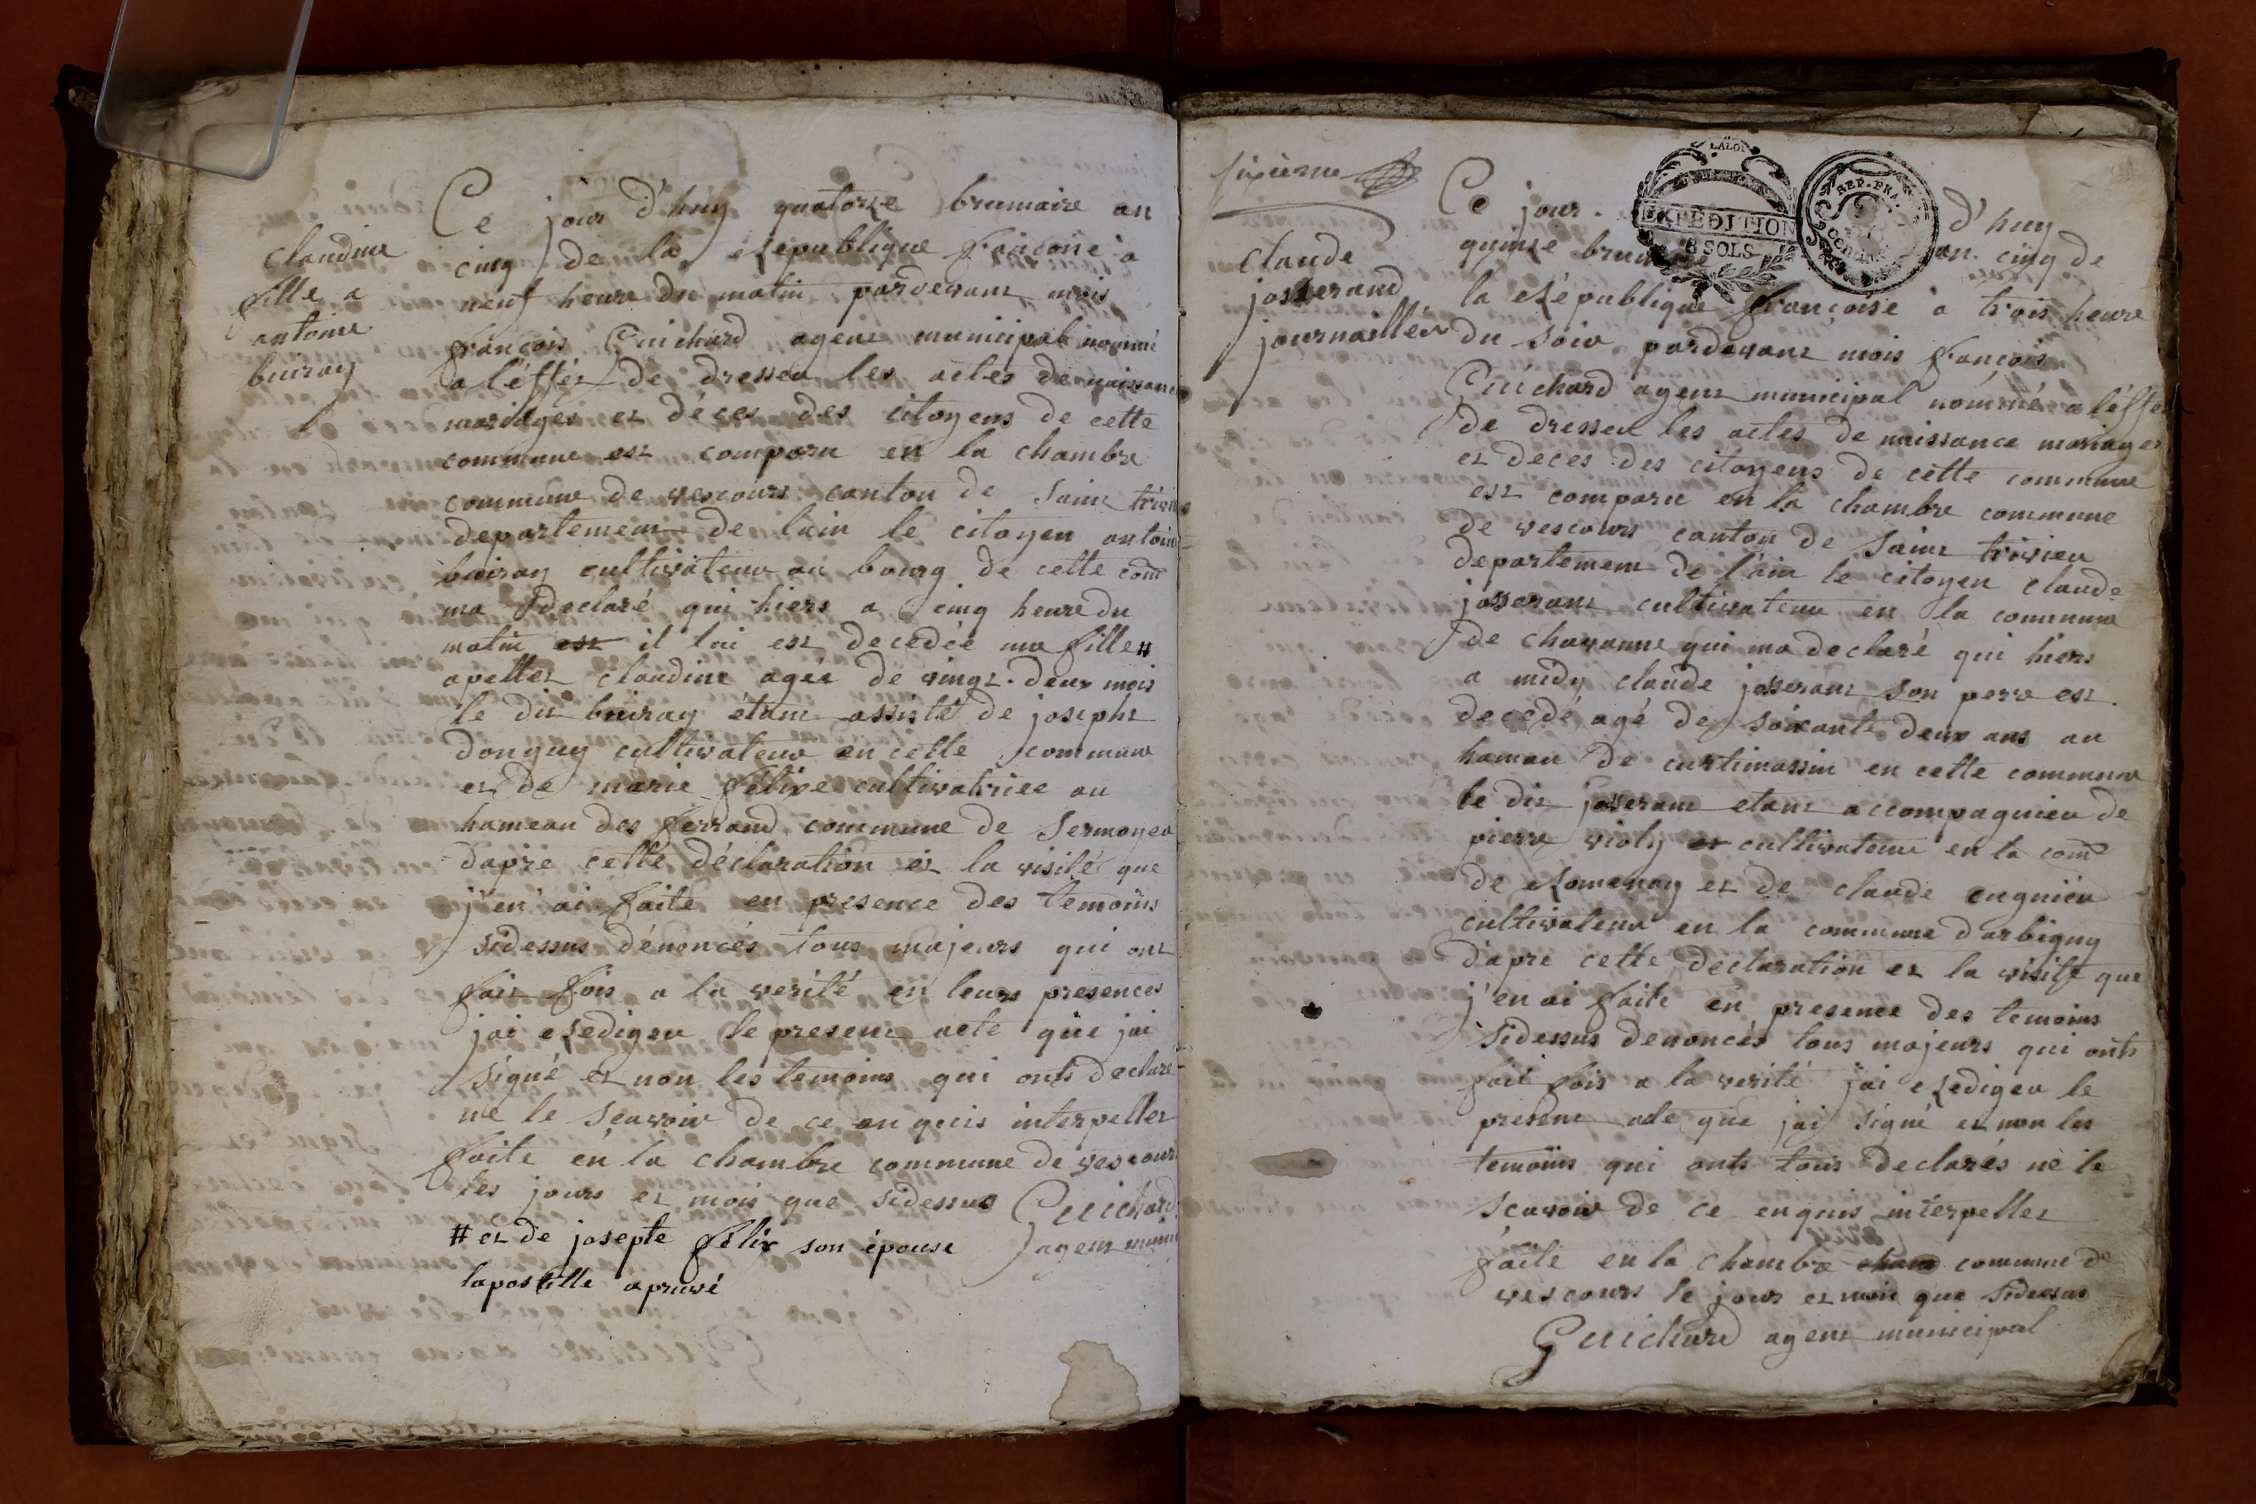 claudine
fille a
antoine
buiray
Ce jour d'huy quatorze brumaire an
cinq de la République françoise a
neuf heure du matin pardevant mois
françois Guichard agent municipal nommé
a l'éffét de dresser les actes de naissance
mariages et déces des citoyens de cette
commune est comparu en la chambre
commune de vescours canton de saint trivie
departement de lain le citoyen antoine
buiray cultivateur au bourg de cette com
ma declaré qui hiers a cinq heure du
matin est il lui est decedée une fille #
apeller claudine agée de vingt-deux mois
le dit buiray étant assisté de joseph
donguy cultivateur en cette commune
et de marie félixe cultivatrice au
hameau des ferrand commune de Sermoyer
dapre cette déclaration et la visite que
j'en ai faite en presence des temoins
sidessus dénoncés tous majeurs qui ont
fait fois a la verité en leurs presences
jai Rediger le present acte que jai
signé et non les temoins qui onts declaré
ne le scavoir de ce enquis interpeller
faite en la chambre commune de vescours
les jours et mois que sidessus Guichard
agent munici
# et de josepte félix son épouse
lapostille apruvé
sixieme
claude
josserand
journaillér
LALOI
EXPEDITION
8 SOLS
REP. FRA.
Ce jour d'huy
quinze brumaire an cinq de
la République françoise a trois heure
du soir pardevant mois françois
Guichard agent municipal nommé a l'éffet
de dresser les actes de naissance mariages
et deces des citoyens de cette commune
est comparu en la chambre commune
de vescours canton de saint trivier
departement de l'ain le citoyen claude
josserant cultivateur en la commune
de chavanne qui ma declaré qui hiers
a midy claude josserant son perre est
decedé agé de soixante deux ans au
hamau de curtimassin en cette commune
le dit josserant etant accompagnier de
pierre violy et cultivateur en la com
de Romenay et de claude
cultivateur en la commune d'arbigny
d'apre cette declaration et la visite que
j'en ai faite en presence des temoins
sidessus denoncés tous majeurs qui onts
fait fois a la verité jai Rediger le
present acte que jai signé et non les
temoins qui onts tous declarés ne le
scavoir de ce enquis interpeller
faite en la chambre commune de
vescours le jour et mois que sidessus
Guichard agent municipal